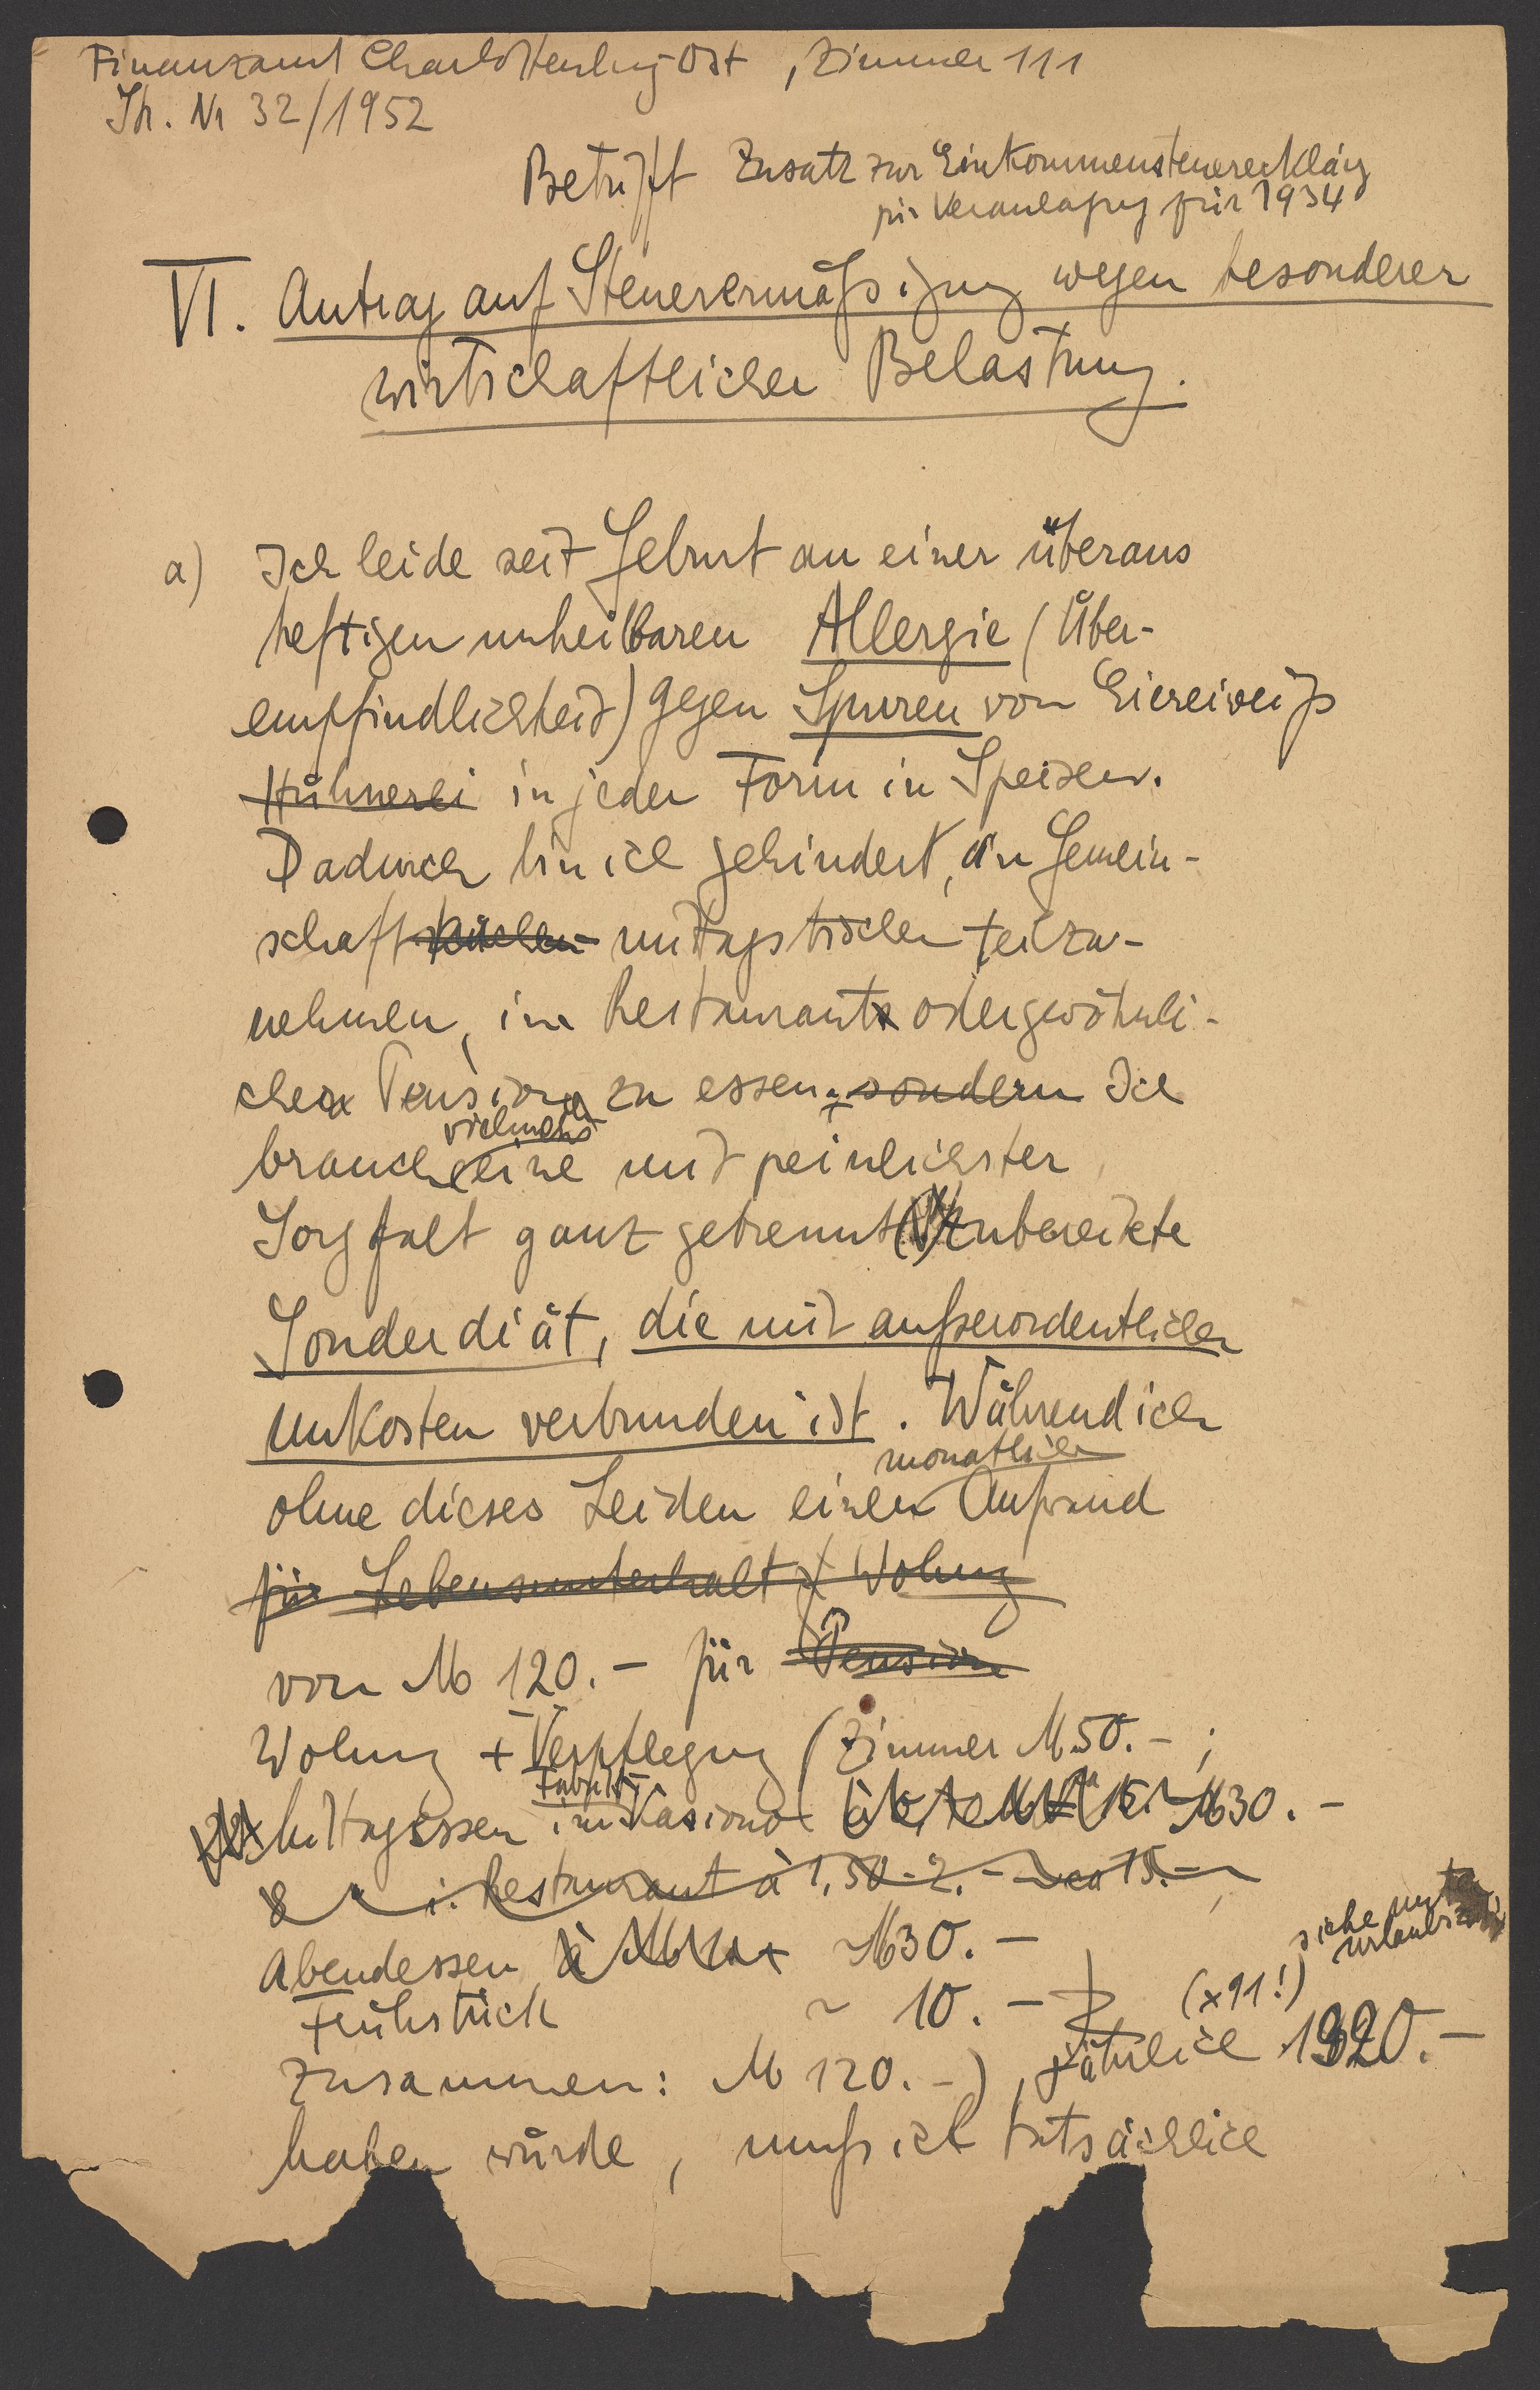 Finanzamt Charlottenburg-Ost, Zimmer 111
St. Nr 32/1952
Betrifft Zusatz zur Einkommensteuererklärg
für Veranlagung für 1934
VI. Antrag auf Steuerermäßigung wegen besonderer
wirtschaftlicher Belastung.
a) Ich leide seit Geburt an einer überaus
heftigen unheilbaren Allergie (Über-
empfindlichkeit) gegen Spuren von Eiereiweiß
Hühnerei in jeder Form in Speisen.
Dadurch bin ich gehindert, an Gemein-
schaftsküchen mittagstischen teilzu-
nehmen, im Restaurant oder gewöhnli-
chen Pension zu essen. sondern Ich
vielmehr
brauche eine mit peinlichster
Sorgfalt ganz getrennt zubereitete
Sonderdiät, die mit außerordentlichen
Unkosten verbunden ist. Während ich
monatlichen
ohne dieses Leiden einen Aufwand
für Lebensunterhalt + Wohng
von M 120.- für Pension
Wohng + Verpflegung (Zimmer M 50.- ;
Fabrik
Mittagessen im Kasino M 30.-
i. Restaurant à 1,50-2.- ca 15.-
siehe unten
Urlaubs
Abendessen M 30.-
Frühstück ~ 10.-
(x 11!)
zusammen: M 120.-), jährlich 1320.-
haben würde, muß ich tatsächlich